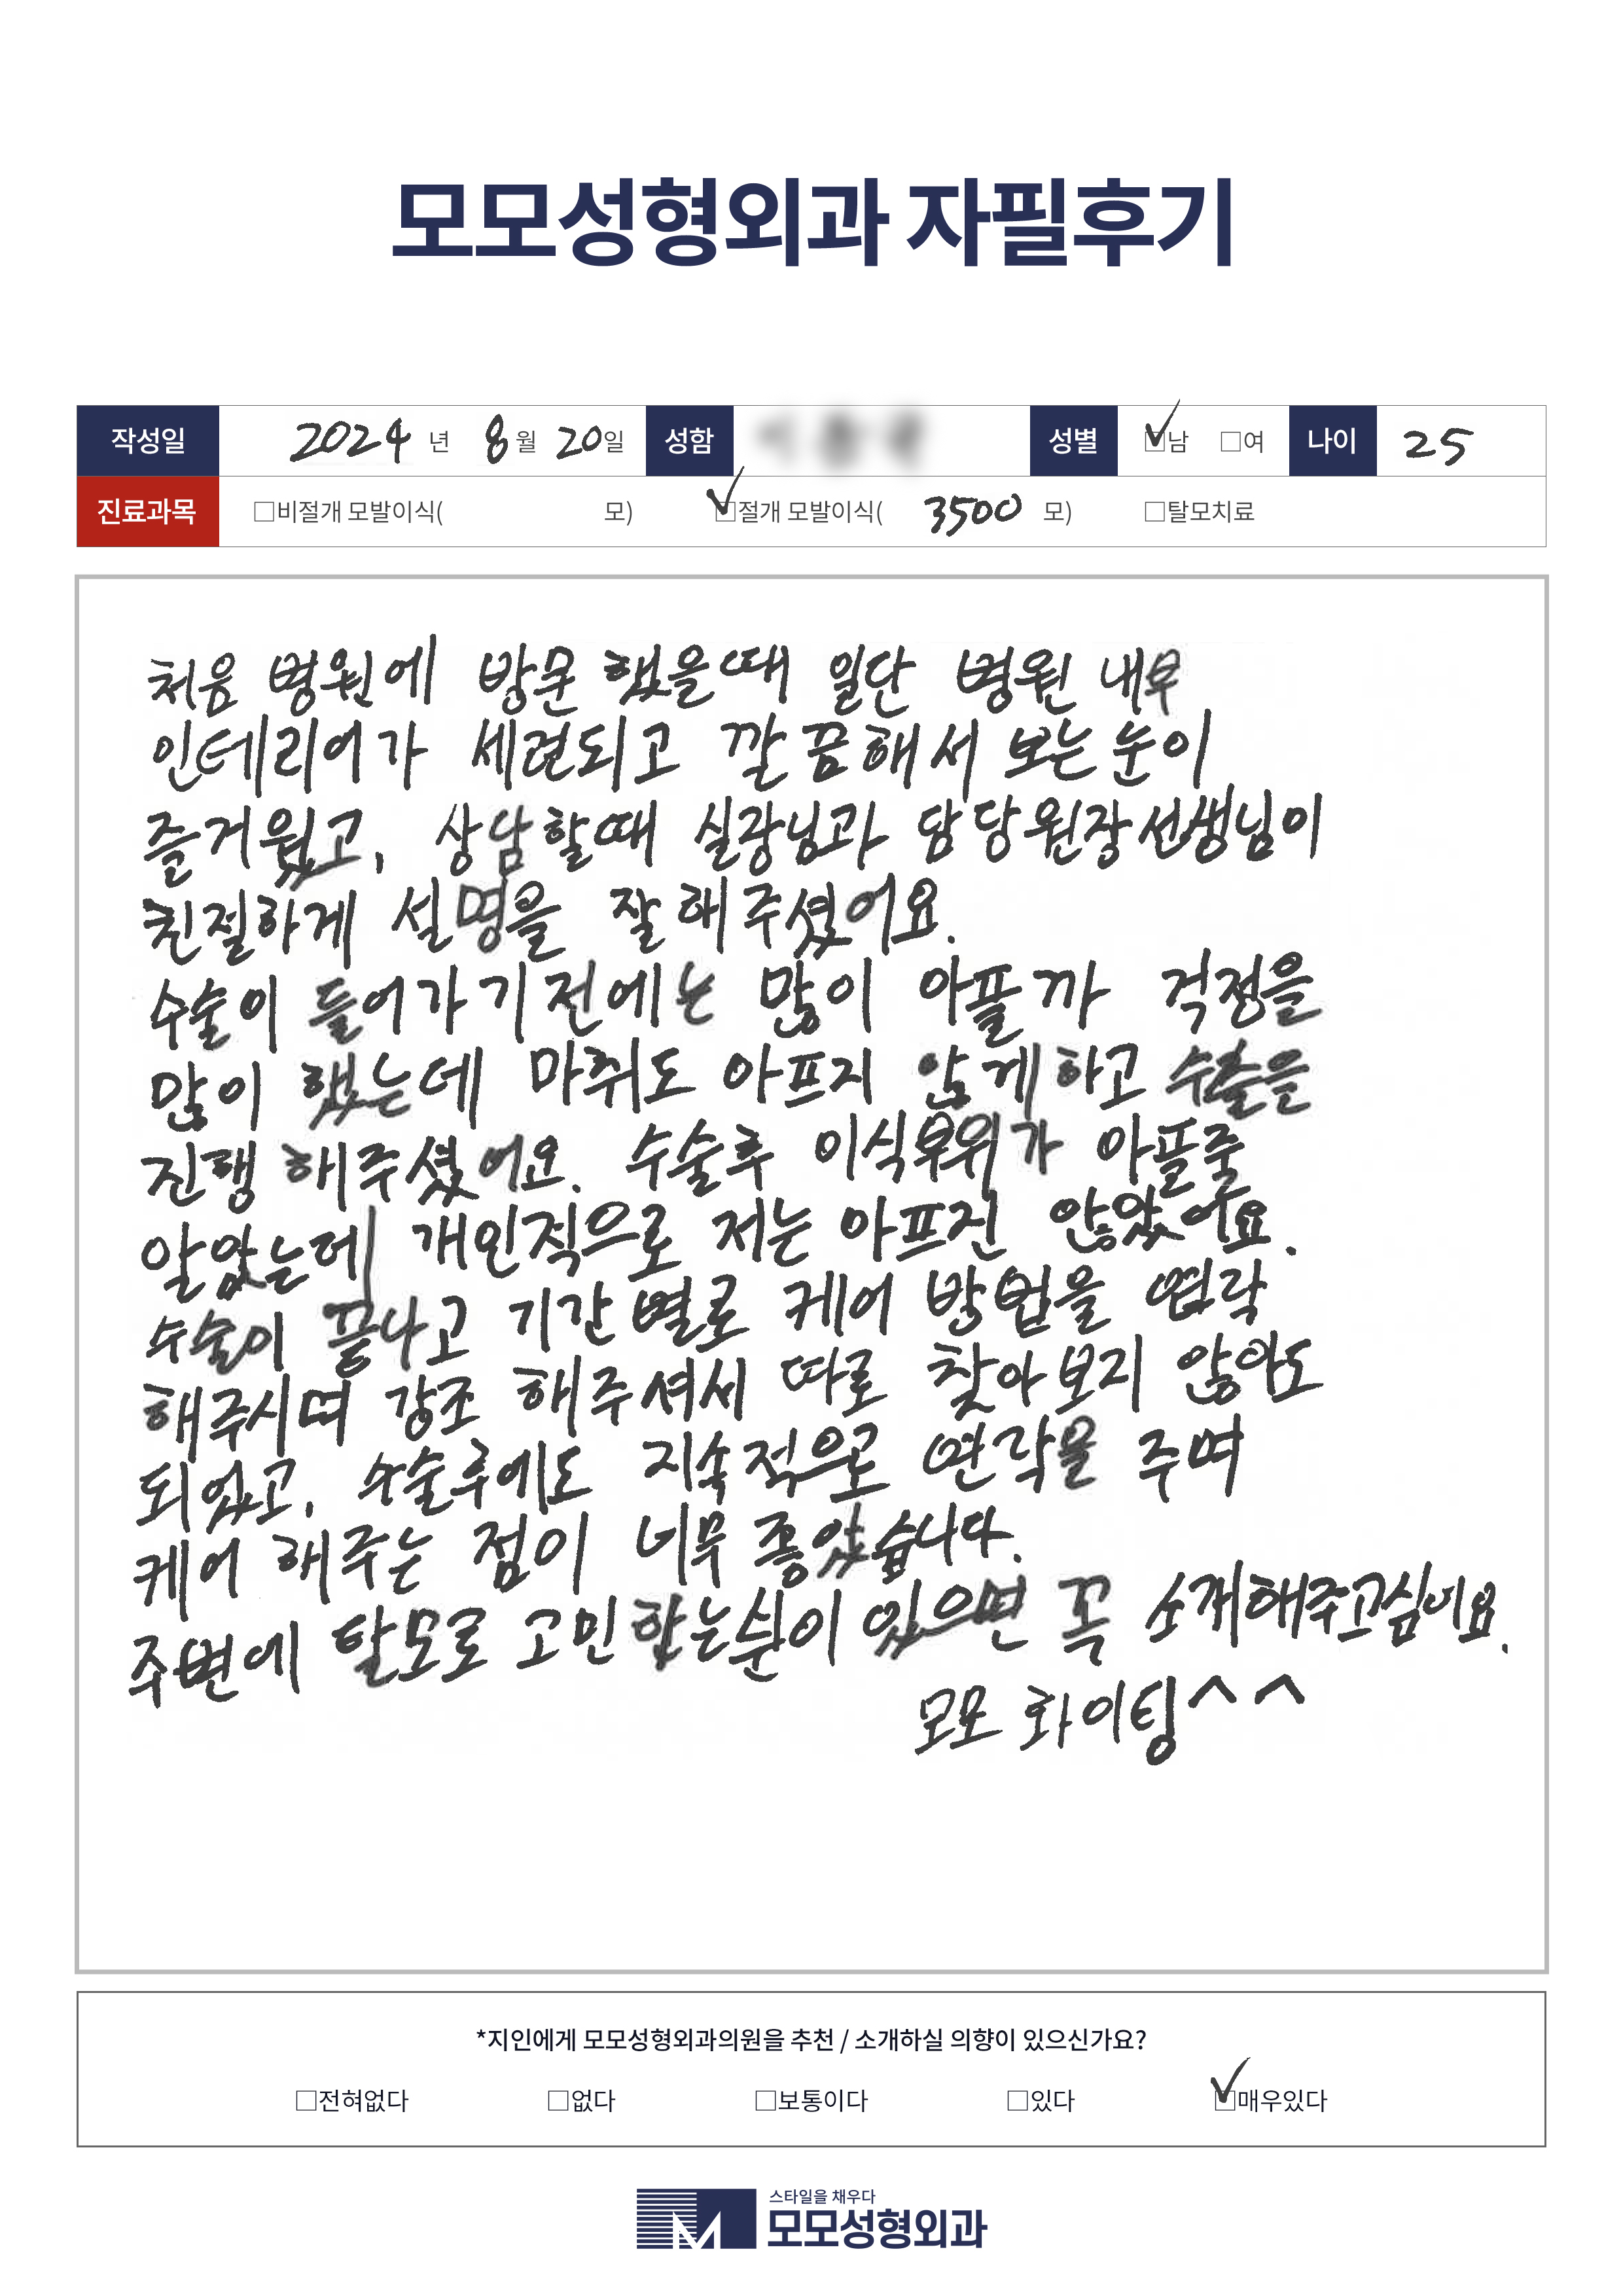 모모성형외과 자필후기
작성일 2024 년 8 월 20 일 성함 성별 ☑남 □여 나이 25
진료과목 □비절개 모발이식( 모) ☑절개 모발이식( 3500 모) □탈모치료
처음 병원에 방문 했을때 일단 병원 내부
인테리어가 세련되고 깔끔해서 보는 눈이
즐거웠고, 상담할때 실장님과 담당원장선생님이
친절하게 설명을 잘해주셨어요.
수술이 들어가기전에는 많이 아플까 걱정을
많이 했는데 마취도 아프지 않게하고 수술을
진행 해주셨어요. 수술후 이식부위가 아플줄
알았는데 개인적으로 저는 아프진 않았어요.
수술이 끝나고 기간별로 케어 방법을 연락
해주시며 강조 해주셔서 따로 찾아보지 않아도
되었고, 수술후에도 지속적으로 연락을 주며
케어 해주는 점이 너무 좋았습니다.
주변에 탈모로 고민하는분이 있으면 꼭 소개해주고싶어요.
모모 화이팅^^
*지인에게 모모성형외과의원을 추천 / 소개하실 의향이 있으신가요?
□전혀없다 □없다 □보통이다 □있다 ☑매우있다
스타일을 채우다
모모성형외과